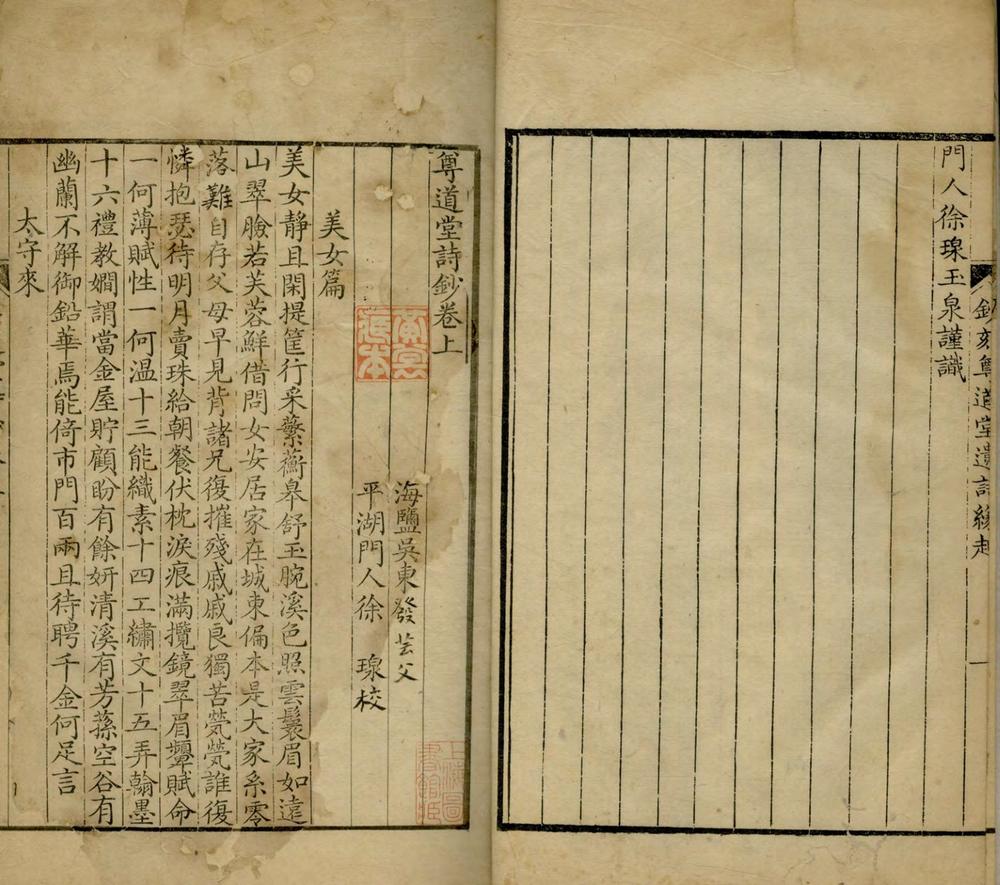 鈔刻尊道堂遺詩緣起
一
門人徐㻞玉泉謹識
尊道堂詩鈔卷上
海鹽吳東發芸父
平湖門人徐　㻞校
美女篇
美女靜且閑提筐行采蘩蘅皋舒玉腕溪色照雲鬟眉如遠
山翠臉若芙蓉鮮借問女安居家在城東偏本是大家系零
落難自存父母早見背諸兄復摧殘戚戚良獨苦煢煢誰復
憐抱瑟待明月賣珠給朝餐伏枕淚痕滿攬鏡翠眉顰賦命
一何薄賦性一何温十三能織素十四工繡文十五弄翰墨
十六禮教嫺謂當金屋貯顧盼有餘妍清溪有芳蓀空谷有
幽蘭不解御鉛華焉能倚市門百兩且待聘千金何足言
太守來
上海圖
書館藏